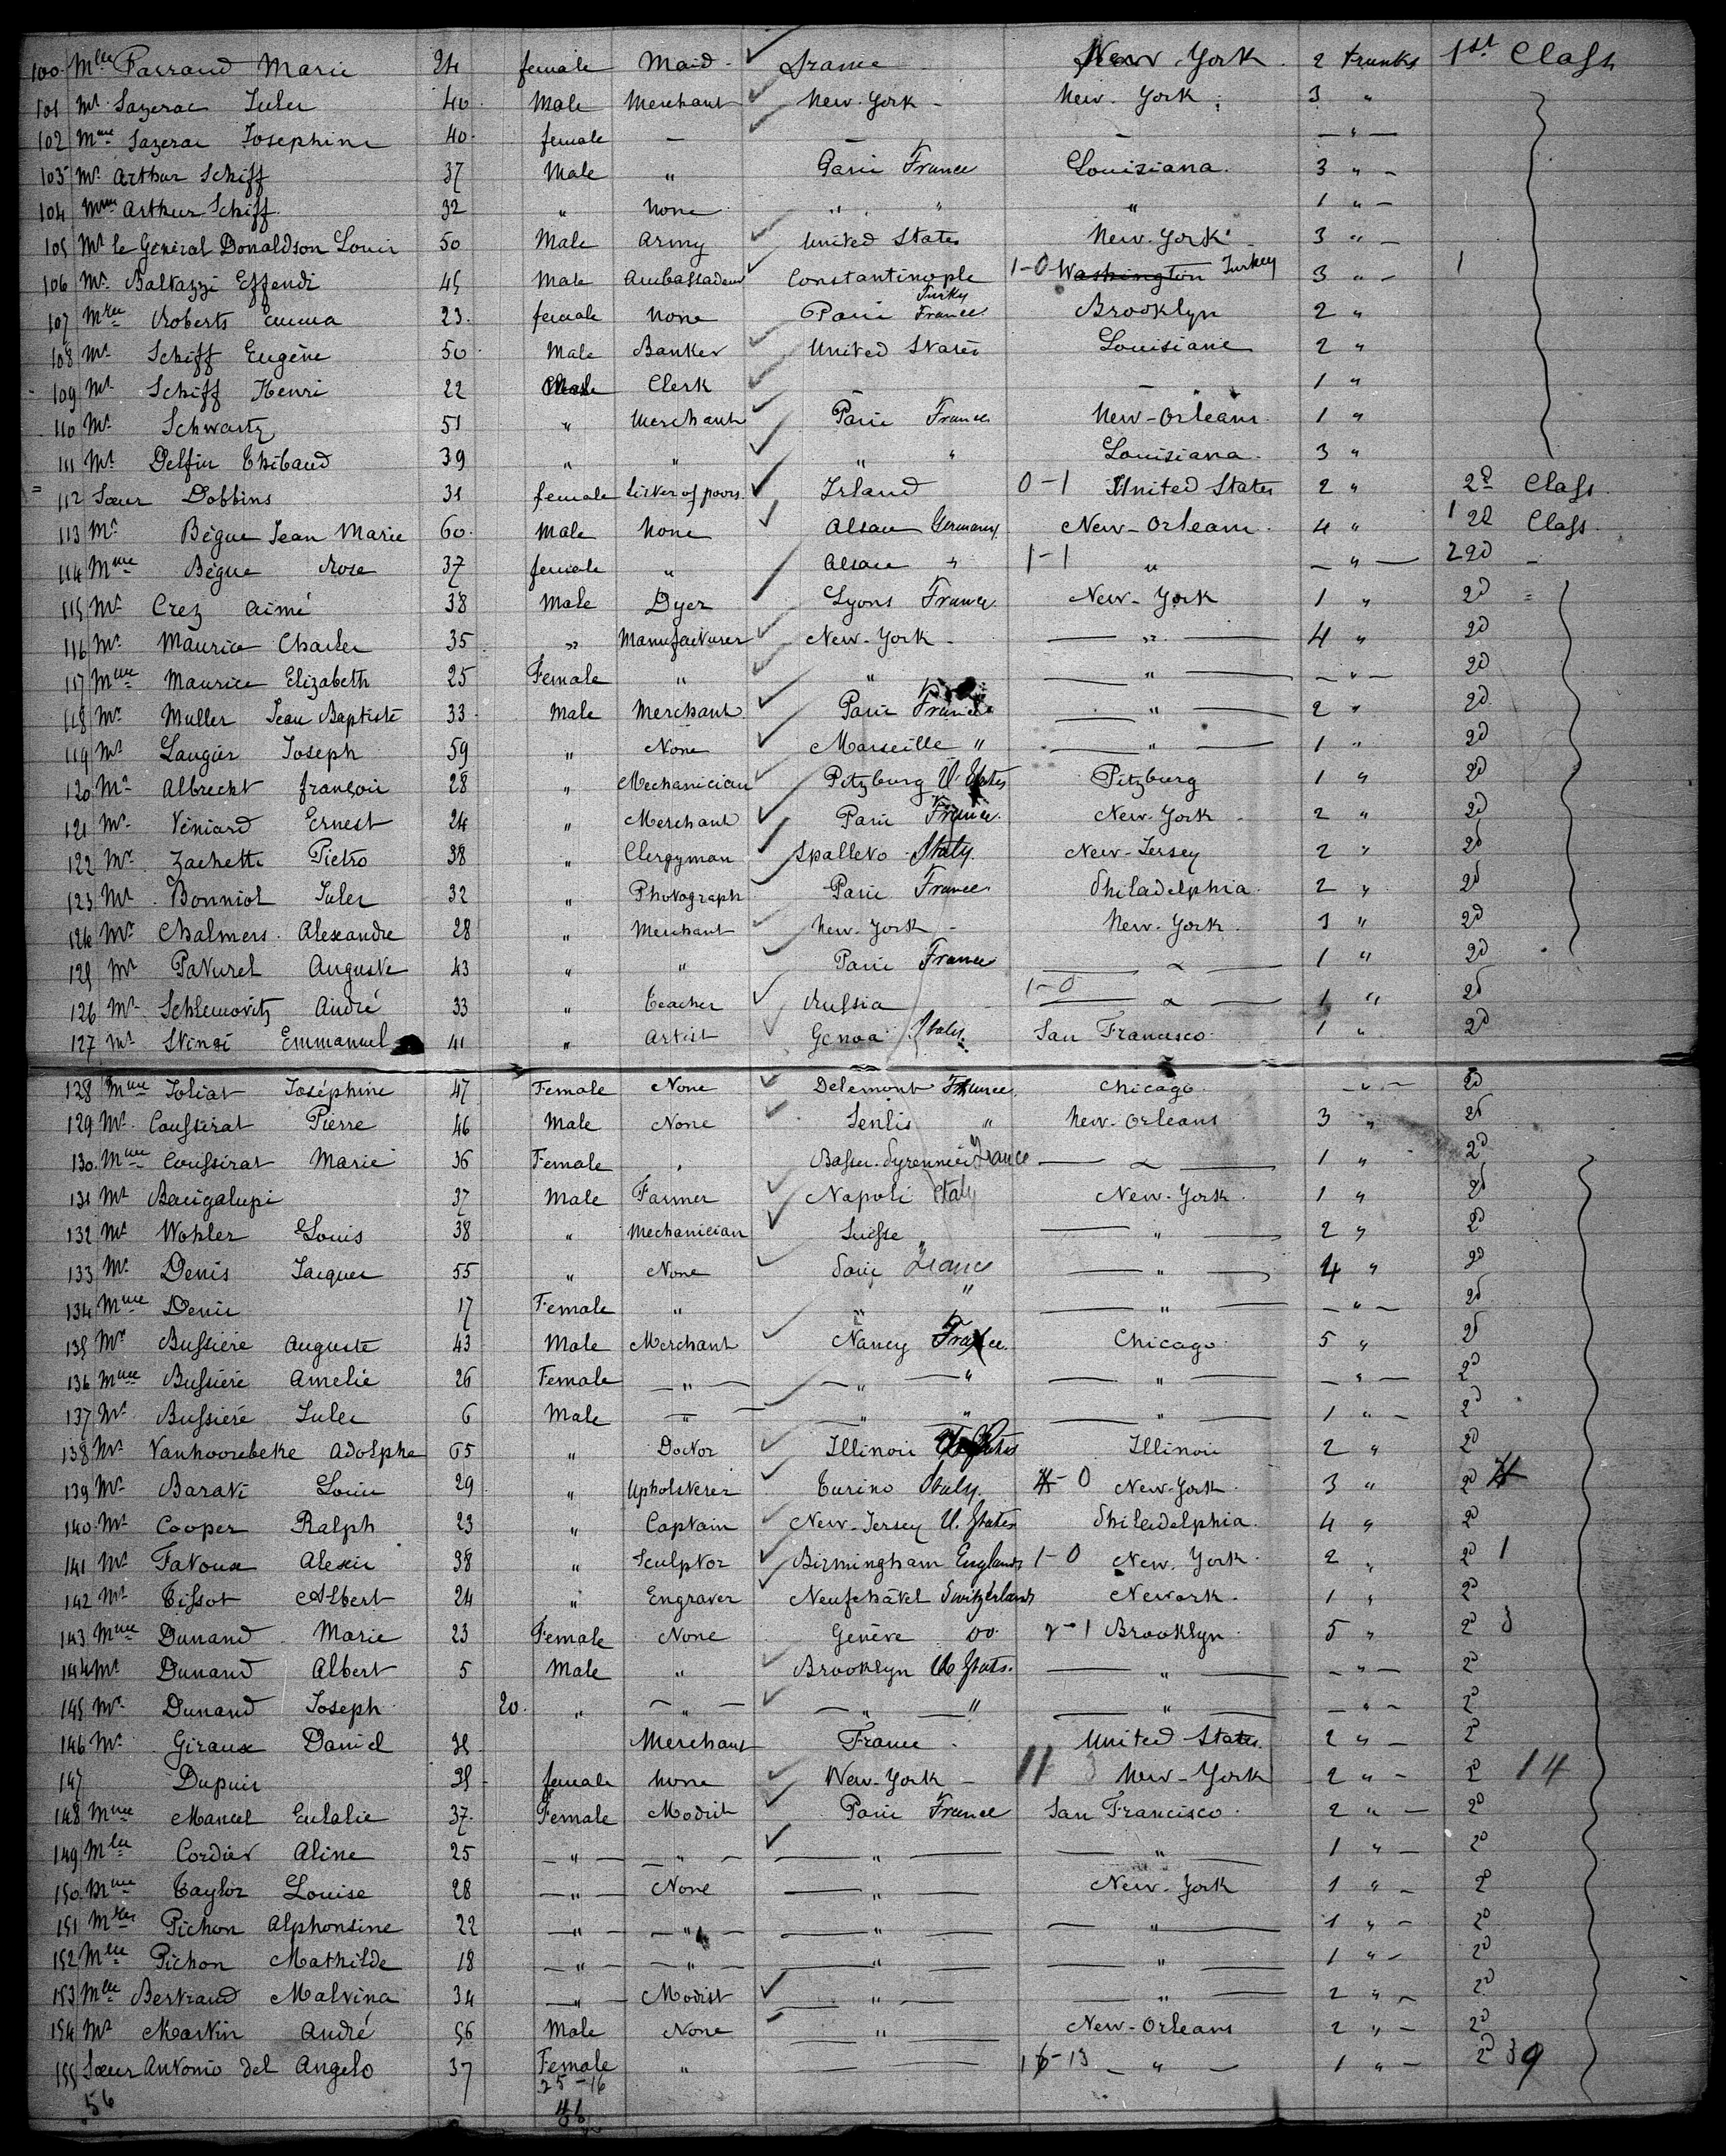 100. Mlle Farraud Marie 24 female Maid France New-York. 2 trunks 1st Class
101 Mr. Sazerac Jules 40. Male Merchant New-York - New-York. 3 "
102 Mme Sazerac Josephine 40. female — — — — " —
103 Mr. Arthur Schiff 37 Male " Paris France Louisiana. 3 " -
104 Mme Arthur Schiff. 32 " None " " " 1 " -
105 Mr le Général Donaldson Louis 50 Male Army United States New-York 3 " -
106 Mr. Baltazzi Effendi 45 Male Ambassadeur Constantinople Turky 1-0 Washington Turkey 3 " - 1
107 Mlle Roberts Emma 23. female None Paris France Brooklyn 2 "
108 Mr Schiff Eugène 50. Male Banker United States Louisiane 2 "
109 Mr Schiff Henri 22 Clerk — — 1 "
110 Mr. Schwartz 51 " Merchant Paris France New-Orleans. 1 "
111 Mr Delfin Thibaud 39 " " " " Louisiana. 3 "
112 Sœur Dobbins 31 female Sister of poors. Irland 0-1 United States 2 " 2d Class.
113 Mr. Bégue Jean Marie 60. Male None Alsace Germany New-Orleans. 4 " 1 2d Class.
114 Mme Bégue Rose 37 female " Alsace " 1-1 " — " — 2 2d -
115 Mr. Crez Aimé 38 Male Dyer Lyons France New-York 1 " 2d
116 Mr. Maurice Charles 35 " Manufacturer New-York - — " — 4 " 2d
117 Mme Maurice Elizabeth 25 Female " " — " — — " — 2d
118 Mr Muller Jean Baptiste 33. Male Merchant. Paris France — " — 2 " 2d
119 Mr Laugier Joseph 59 " None Marseille " — " — 1 " 2d
120 Mr Albrecht françois 28 " Mechanician Pitzburg U. States Pitzburg 1 " 2d
121 Mr. Véniard Ernest 24 " Merchant Paris France. New-York 2 " 2d
122 Mr. Zachetti Pietro 38 " Clergyman Spalleto Italy. New-Jersey 2 " 2d
123 Mr. Bonniol Jules 32 " Photograph Paris France Philadelphia. 2 " 2d
124 Mr Chalmers. Alexandre 28 " Merchant New-York - New-York. 3 " 2d
125 Mr Paturel Auguste 43 " " Paris France — " — 1 " 2d
126 Mr. Schlemovitz André 33 " Teacher Russia 1-0 — " — 1 " 2d
127 Mr Stinsi Emmanuel 41 " Artist Genoa Italy. San Francisco. 1 " 2d
128 Mme Joliat Joséphine 47 Female None Delemont France. Chicago — " — 2d
129 Mr. Coussirat Pierre 46 Male None Senlis " New-Orleans 3 " 2d
130. Mme Coussirat Marie 36 Female " Basses-Pyrennées France — " — 1 " 2d
131 Mr Bacigalupi 37 Male Farmer Napoli Italy New-York. 1 " 2d
132 Mr Wohler Louis 38 " Mechanician Suisse " — " — 2 " 2d
133 Mr. Denis Jacques 55 " None Paris France — " — 4 " 2d
134 Mme Denis 17 Female " " " — " — — " — 2d
135 Mr Bussière Auguste 43 Male Merchant Nancy France. Chicago. 5 " 2d
136 Mme Bussière Amelie 26 Female — " — — " — " — " — — " — 2d
137 Mr. Bussière Jules 6 Male — " — — " — " — " — 1 " - 2d
138 Mr Vanhoorebeke Adolphe 65 " Doctor Illinois U. States Illinois 2 " 2d
139 Mr. Barati Louis 29 " Upholsterer Turino Italy. 0 New-York. 3 " 2d
140. Mr Cooper Ralph 23 " Captain New-Jersey U. States Philadelphia. 4 " 2d
141 Mr Fatoux Alexis 38 " Sculptor Birmingham England 1-0 New-York. 2 " 2d 1
142 Mr Tissot Albert 24 " Engraver Neufchâtel Switzerland Newark. 1 " 2d
143 Mme Dunand Marie 23 Female None Genève do. 2-1 Brooklyn. 5 " 2d 3
144 Mr Dunand Albert 5 Male " Brooklyn U. States. — " — — " — 2d
145 Mr Dunand Joseph 20. " — " — — " — " — " — — " — 2d
146 Mr. Giraux Daniel 38 Merchant France. United States. 2 " - 2d
147 Dupuis 38 female None New-York - 11 3 New-York 2 " - 2d 14
148 Mme Mancel Eulalie 37. Female Modist Paris France San Francisco. 2 " - 2d
149 Mlle Cordier Aline 25 — " — — " — — " — — " — 1 " - 2d
150 Mme Taylor Louise 28 — " — None — " — New-York 1 " - 2d
151 Mlle Pichon Alphonsine 22 — " — — " — — " — — " — 1 " - 2d
152 Mlle Pichon Mathilde 18 — " — — " — — " — — " — 1 " - 2d
153 Mlle Bertrand Malvina 34 — " — Modist — " — — " — 2 " - 2d
154 Mr Martin André 56 Male None — " — New-Orleans 2 " - 2d
155 Sœur Antonio del Angelo 37 Female " — — 16-13 — " — 1 " - 2d 39
56 25-16